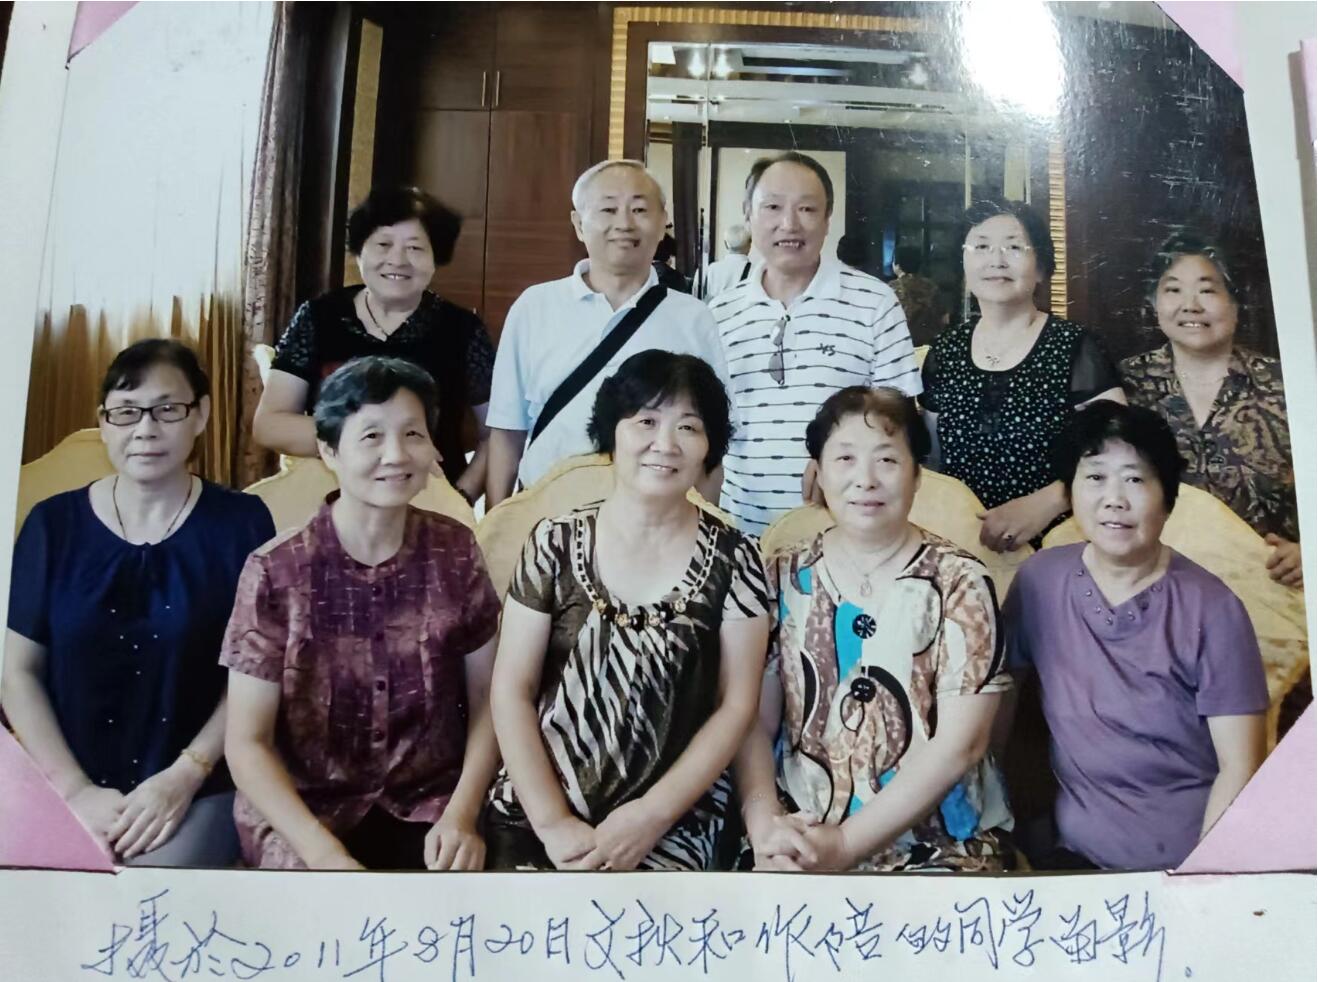 YS
摄於2011年8月20日文秋和作陪的同学留影.